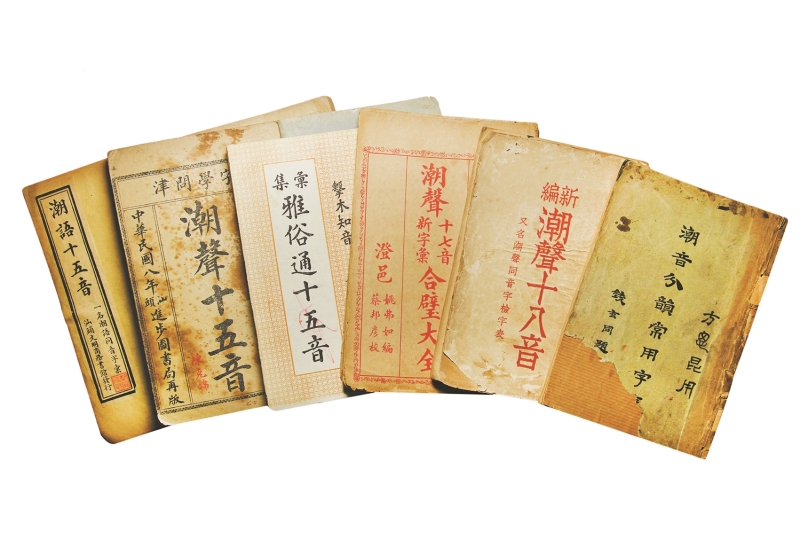 潮語十五音
一名潮語同音字彙
汕頭文明商務書館發行
字學問津
潮聲十五音
中華民國八年汕頭進步圖書局再版
擊木知音
彙集
雅俗通十五音
潮聲十七音
新字彙合璧大全
澄邑
姚弗如編
蔡邦彥校
新編
潮聲十八音
又名潮聲同音字檢字表
潮音分韻常用字
錢玄同題